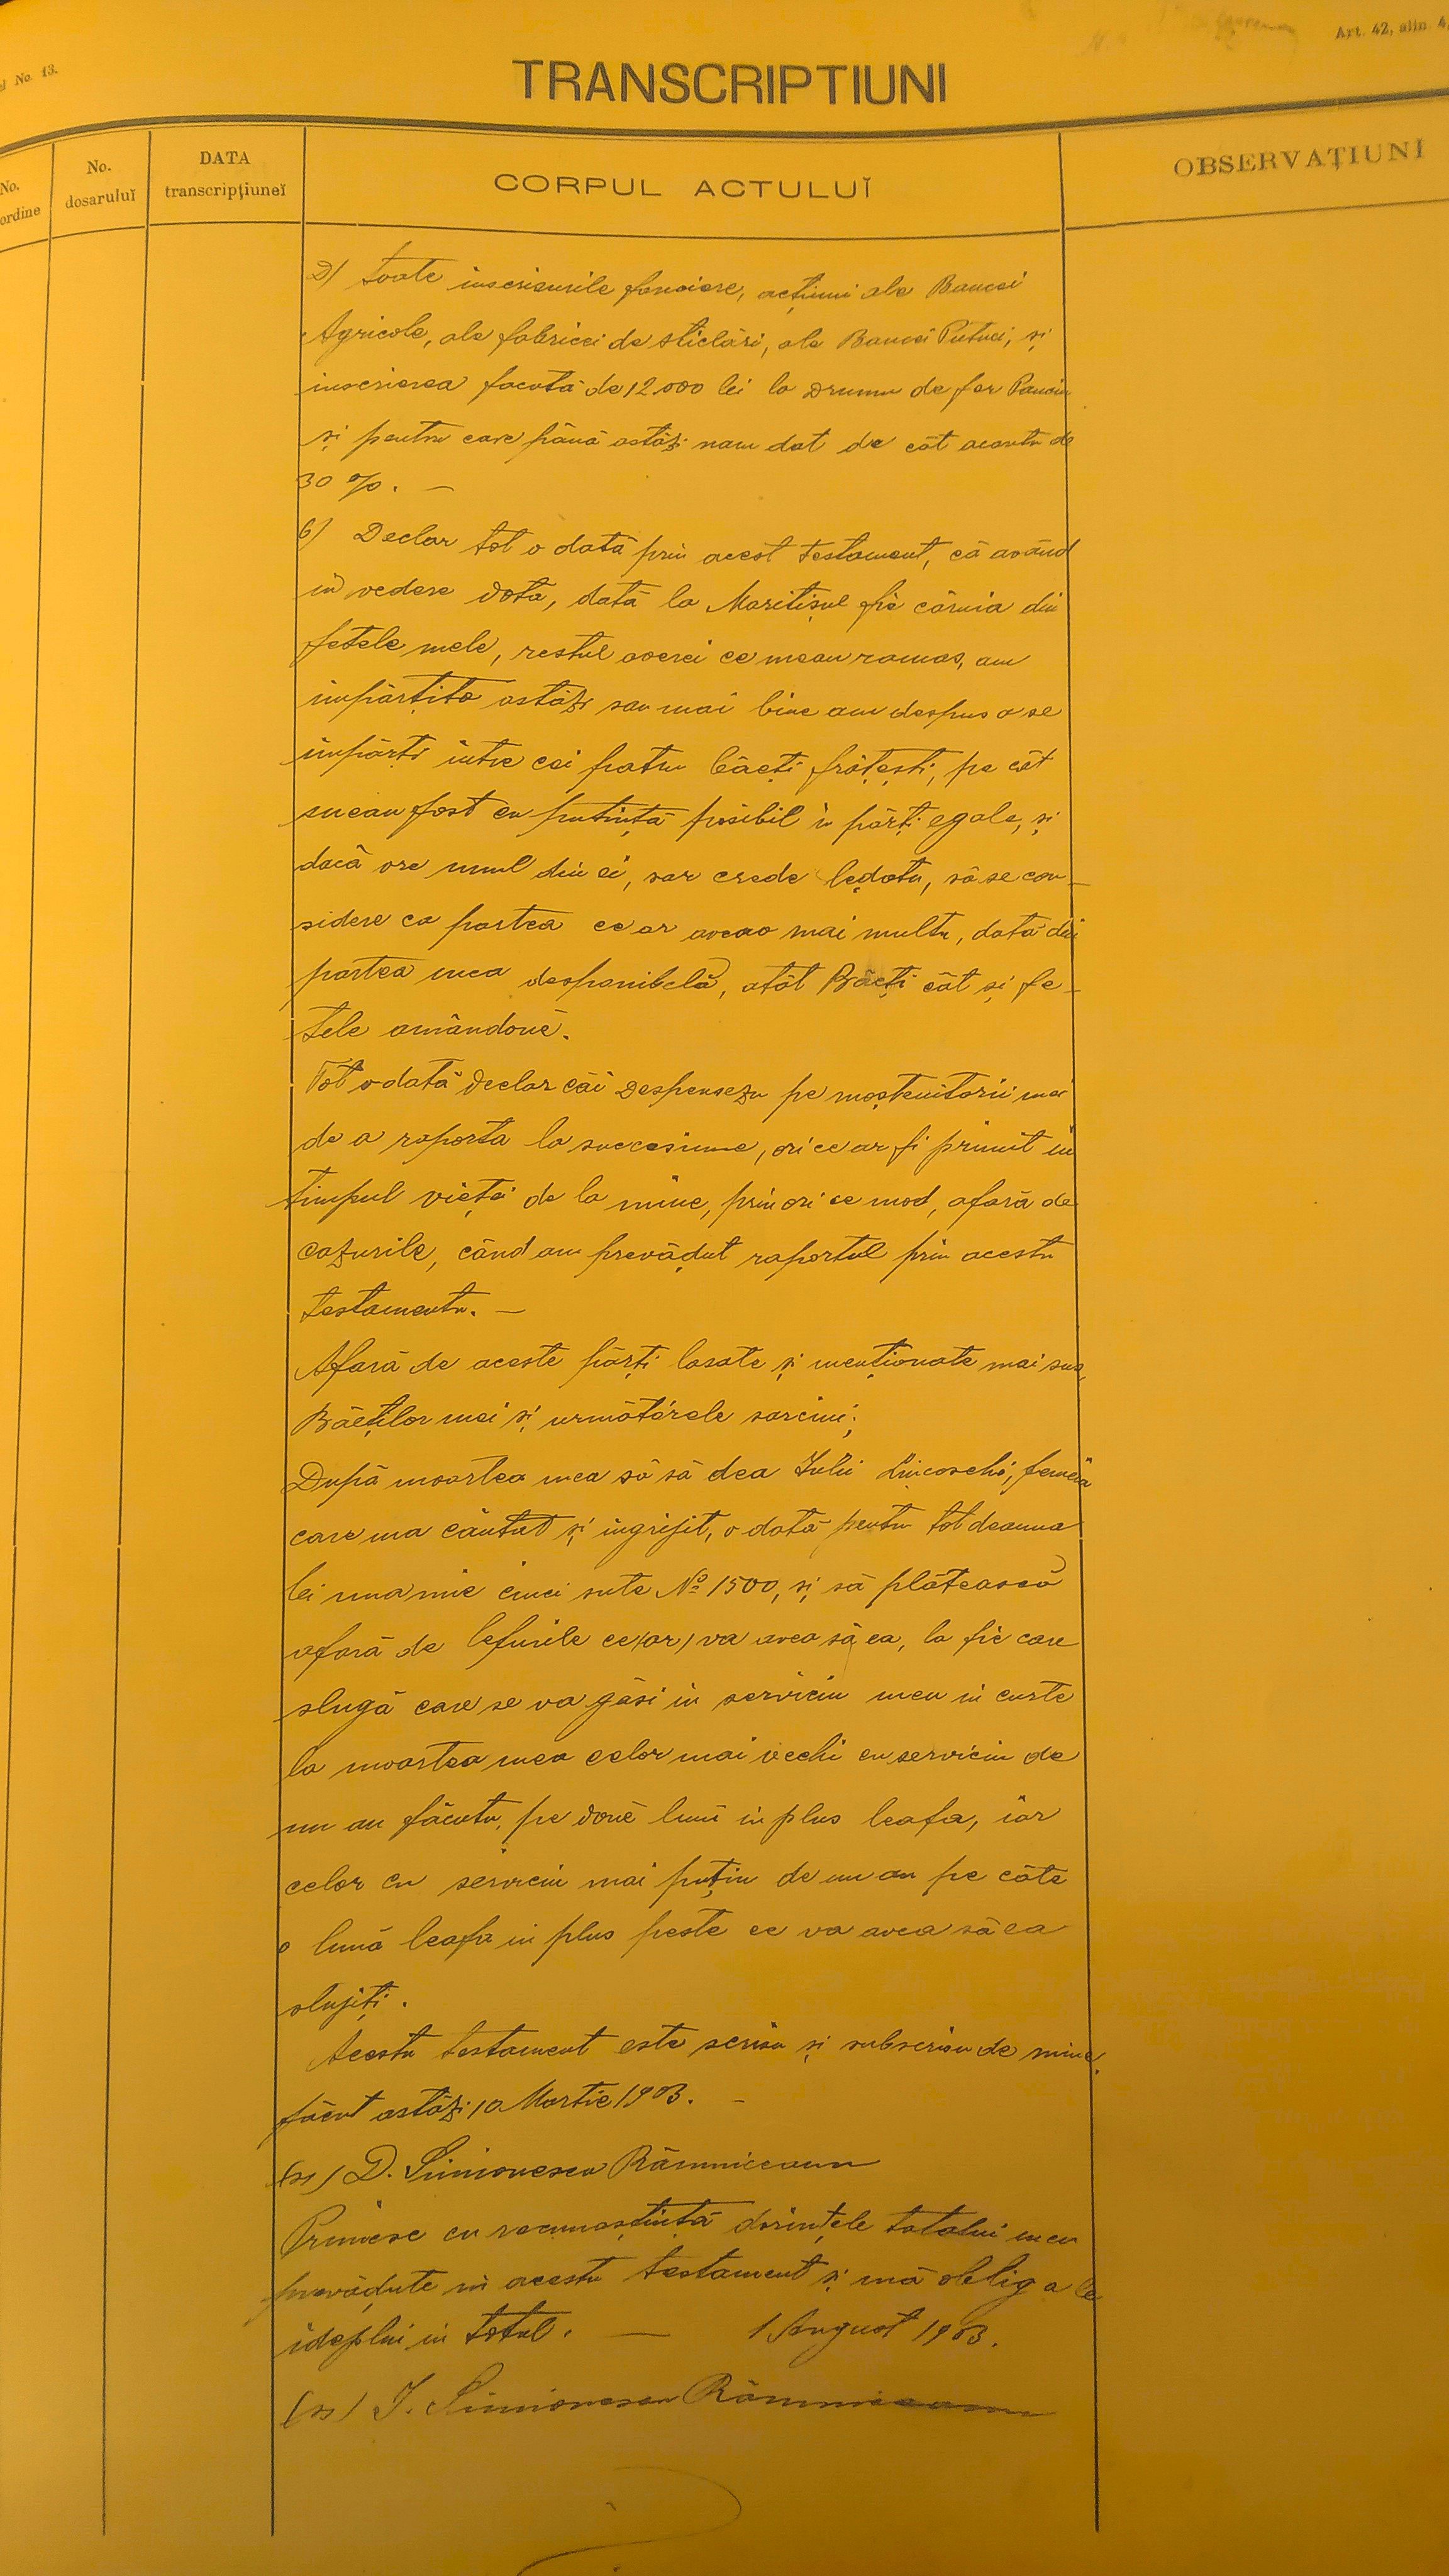 No. 13.
Art. 42, alin. 4,
TRANSCRIPTIUNI
No. ordine
No. dosaruluĭ
DATA transcripţiuneĭ
CORPUL ACTULUĬ
OBSERVAŢIUNI
D/ toate inscrisurile fonciere, acțiuni ale Bancei
Agricole, ale fabricei de sticlări, ale Bancei Putnei, și
inscrierea facută de 12.000 lei la Drumu de fer Panciu
și pentru care până astăzi nam dat de cât acontu de
30 %. —
6) Declar tot o dată prin acest testament, că având
in vedere dota, dată la Maritișul fie căruia din
fetele mele, restul averei ce meau ramas, am
împărțito astăzi sau mai bine am despus a se
împărți intre cei patru băeți frățești, pe cât
meau fost cu putință posibil in părți egale, și
dacă ore unul din ei, sar crede leḑatu, să se con-
sidere ca partea ce ar aveao mai multu, dată din
partea mea desponibelă, atât Băeți cât și fe-
tele amândoue.
Tot o dată declar căi Despensezu pe moștenitorii mei
de a raporta la succesiune, ori ce ar fi primit in
timpul vieței de la mine, prin ori ce mod, afară de
cazurile, când am prevăḑut raportul prin acestu
testamentu. —
Afară de aceste părți lasate și menționate mai sus,
Băeților mei și următorele sarcini;
După moartea mea să să dea Iulii femeia
care ma căutat și ingrijit, o dată pentru tot deauna
lei una mie cinci sute No 1500, și să plătească
afară de lefurile ce (ar) va avea să ea, la fie care
slugă care se va găsi in serviciu meu in curte
la moartea mea celor mai vechi cu serviciu de
un an făcutu, pe doue luni in plus leafa, iar
celor cu serviciu mai puțin de un an pe câte
o lună leafa in plus peste ce va avea să ea
slujiți.
Acestu testament este scrisu și subscrisu de mine,
făcut astăzi 10 Martie 1903. —
(ss) D. Simionescu Râmniceanu
Primesc cu recunoștință dorințele tatalui meu
prevăḑute in acestu testament și mă oblig a le
ideplini in totul. — 1 August 1903.
(ss) I. Simionescu Râmniceanu